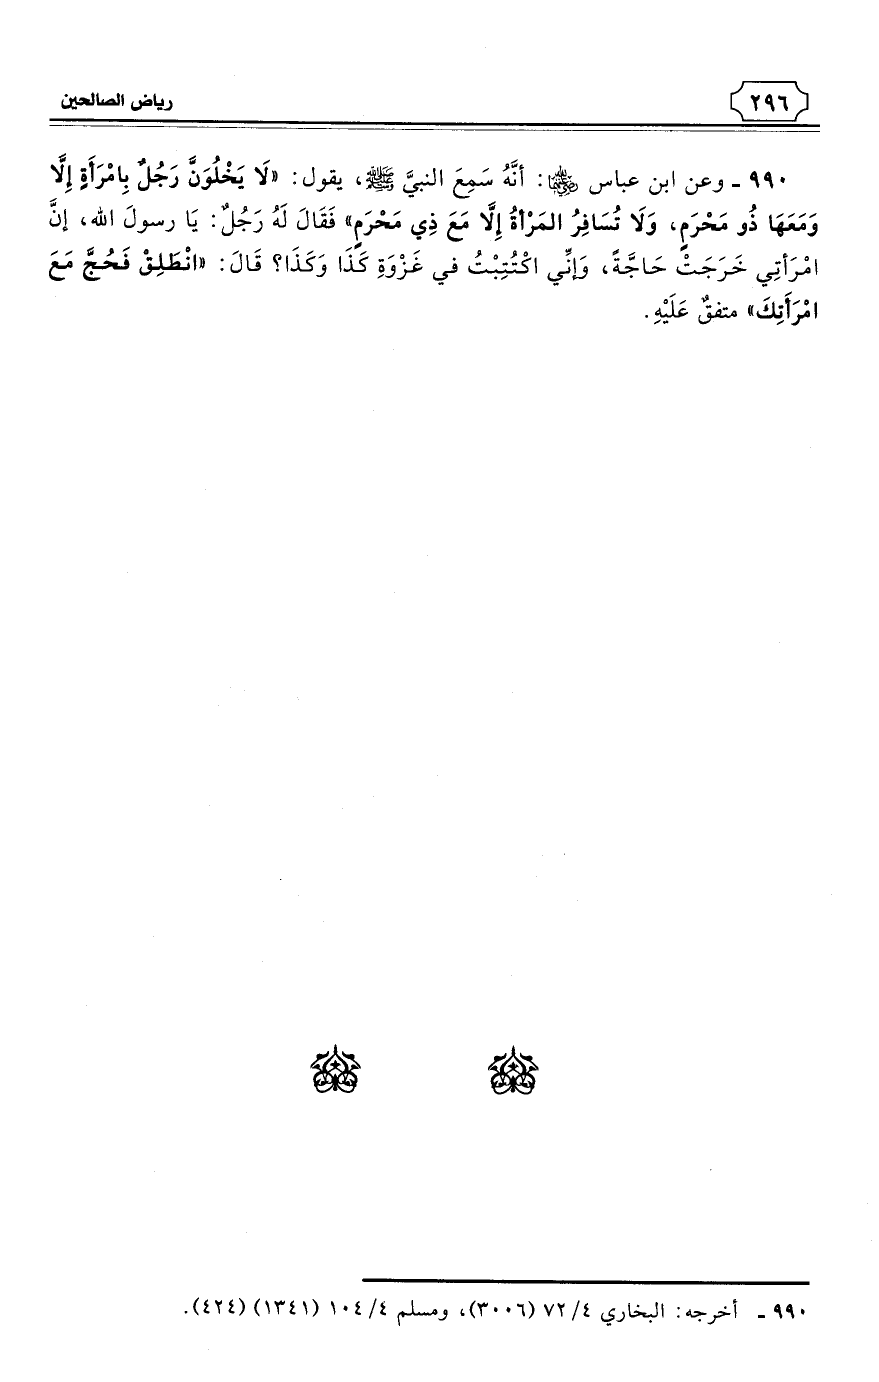 ٢٩٦ رياض الصالحين
٩٩٠ ـ وعن ابن عباس ﵄: أنَّهُ سَمِعَ النبيَّ ﷺ، يقول: «لَا يَخْلُوَنَّ رَجُلٌ بِامْرَأَةٍ إِلَّا
وَمَعَهَا ذُو مَحْرَمٍ، وَلَا تُسَافِرُ المَرْأةُ إِلَّا مَعَ ذِي مَحْرَمٍ» فَقَالَ لَهُ رَجُلٌ: يَا رسولَ الله، إنَّ
امْرَأتِي خَرَجَتْ حَاجَّةً، وَإنِّي اكْتُتِبْتُ في غَزْوَةِ كَذَا وَكَذَا؟ قَالَ: «انْطَلِقْ فَحُجَّ مَعَ
امْرَأَتِكَ» متفقٌ عَلَيْهِ.
٩٩٠ ـ أخرجه: البخاري ٧٢/٤ (٣٠٠٦)، ومسلم ١٠٤/٤ (١٣٤١) (٤٢٤).